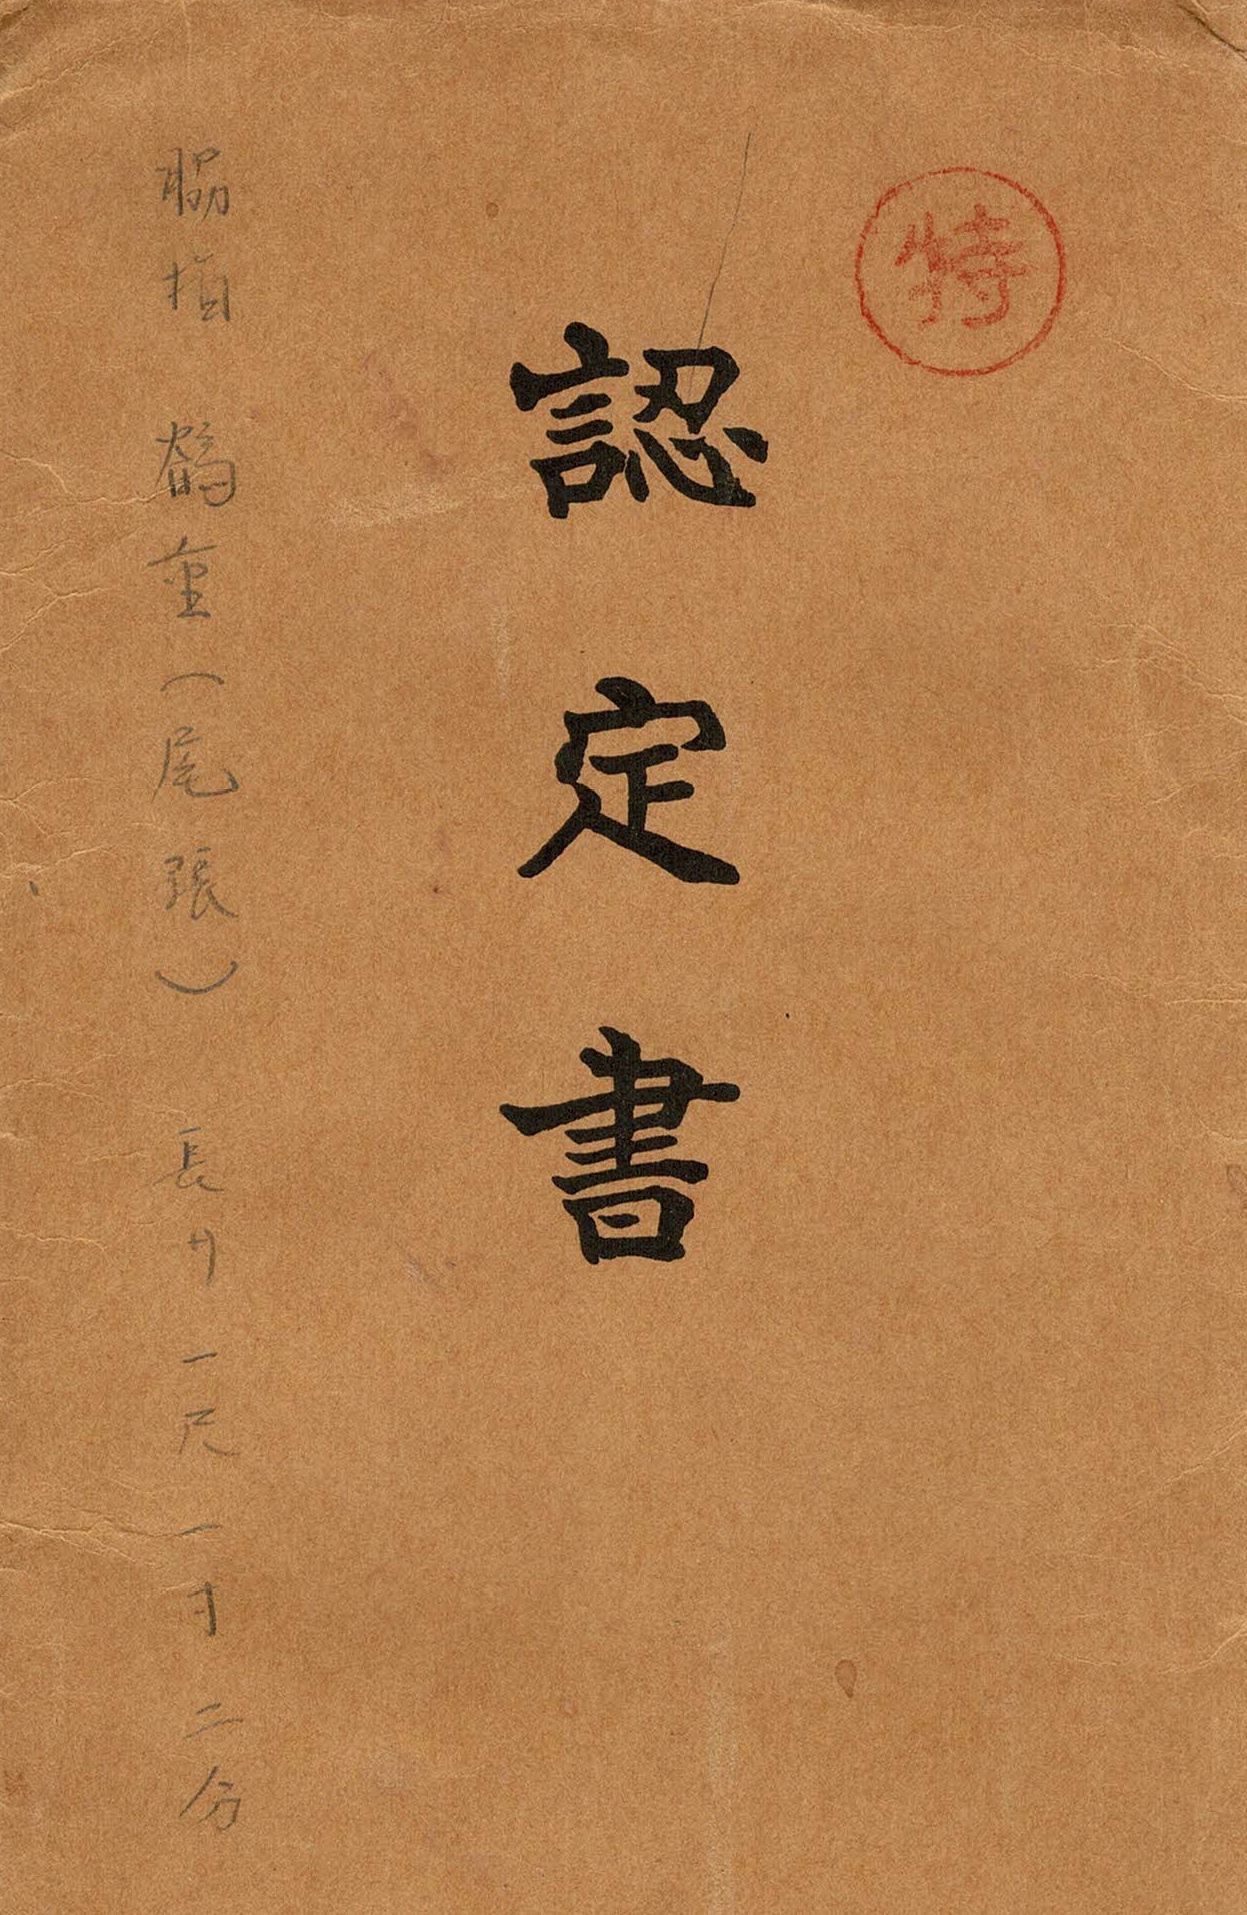 特
認定書
脇指 鶴重(尾張) 長サ一尺一寸二分